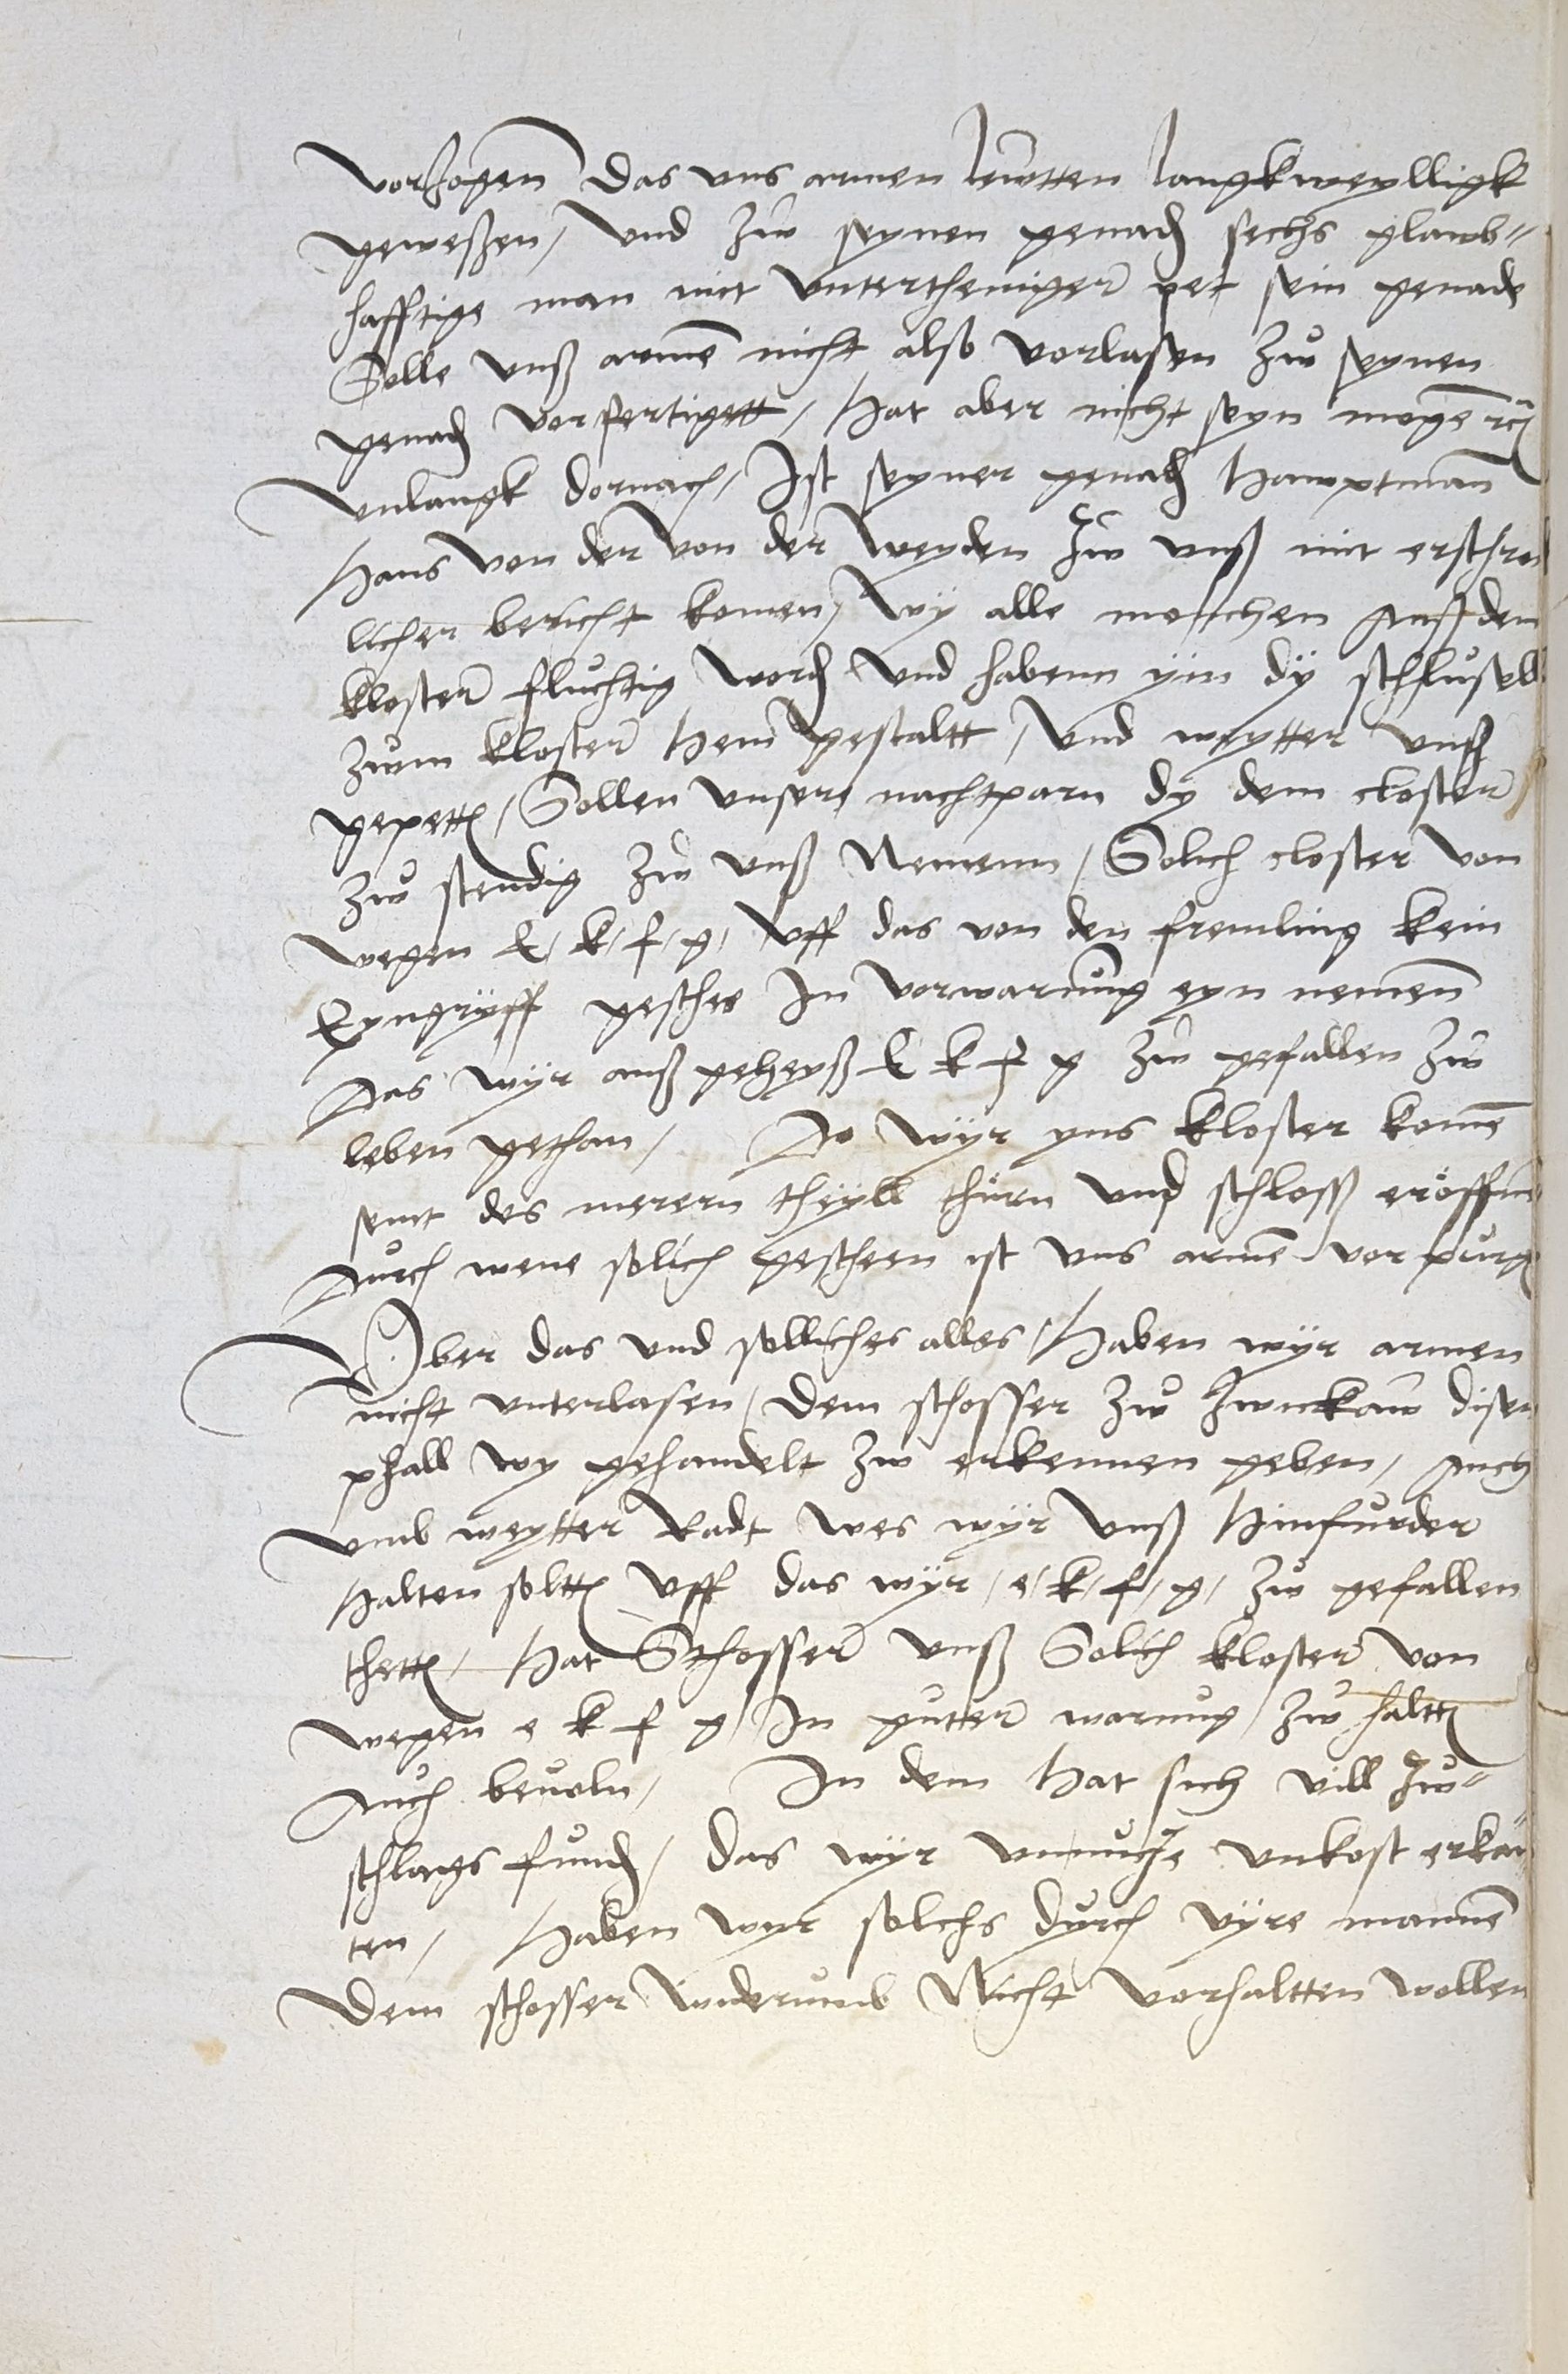 vorzogen Das vns armen lewtten langkweylligk
geweßen / Vnd zw seynen genadn sechs glawb=
hafftige man mit vntertheniger pet sein genade
Solle vnß arme nicht also vorlasen zw seynen
genadn vorfertigett / Hat aber nicht seyn moge rc
vnlangk dornach / Ist seyner genadn Hawptman
Hans von der von der Weyden Zw vnß mit erschreck
licher bericht komen / Wÿ alle monchen Auß dem
kloster fluchtig wordn Vnd habenn ÿm dÿ schlussell
Zwm kloster Hem gestaltt / Vnd weytter vnß
gepettn / Sollen vnsere nachtparn dy dem closter
zw stendig zw vnß Nemenn / Solich closter von
wegen E / k / f / g / Vff das von den fremling kein
Eyngrÿff geschee In vorwarung eyn nemen
Das wÿr auß geheyß E k f g zw gefallen zw
leben gethan / Do wÿr yns kloster kome
seint des merern theÿll thurn vnd schloss eröffnet
Durch wene solich gescheen ist vns arme vorporgn
Vber das vnd sollichs alles / Haben wÿr armen
nicht vnterlasen / Dem schosser zw Zwickaw disen
phall wy gehandelt zw erkennen geben / Auch
vmb weytter Radt wes wÿr vnß Hinfurder
Halten solttn Vff das wÿr / e / k / f / g / zw gefallen
thettn / Hat Schosser vnß Solich kloster von
wegen e k f g / In gutter warnug / zw halttn
Auch beuoln / In dem Hat sich vill Zw=
schlags fundn / Das wÿr vnnucze vnkost erkan
ten / Haben wyr solchs durch vÿre manne
Dem schosser widerumb Nicht vorhaltten wollen